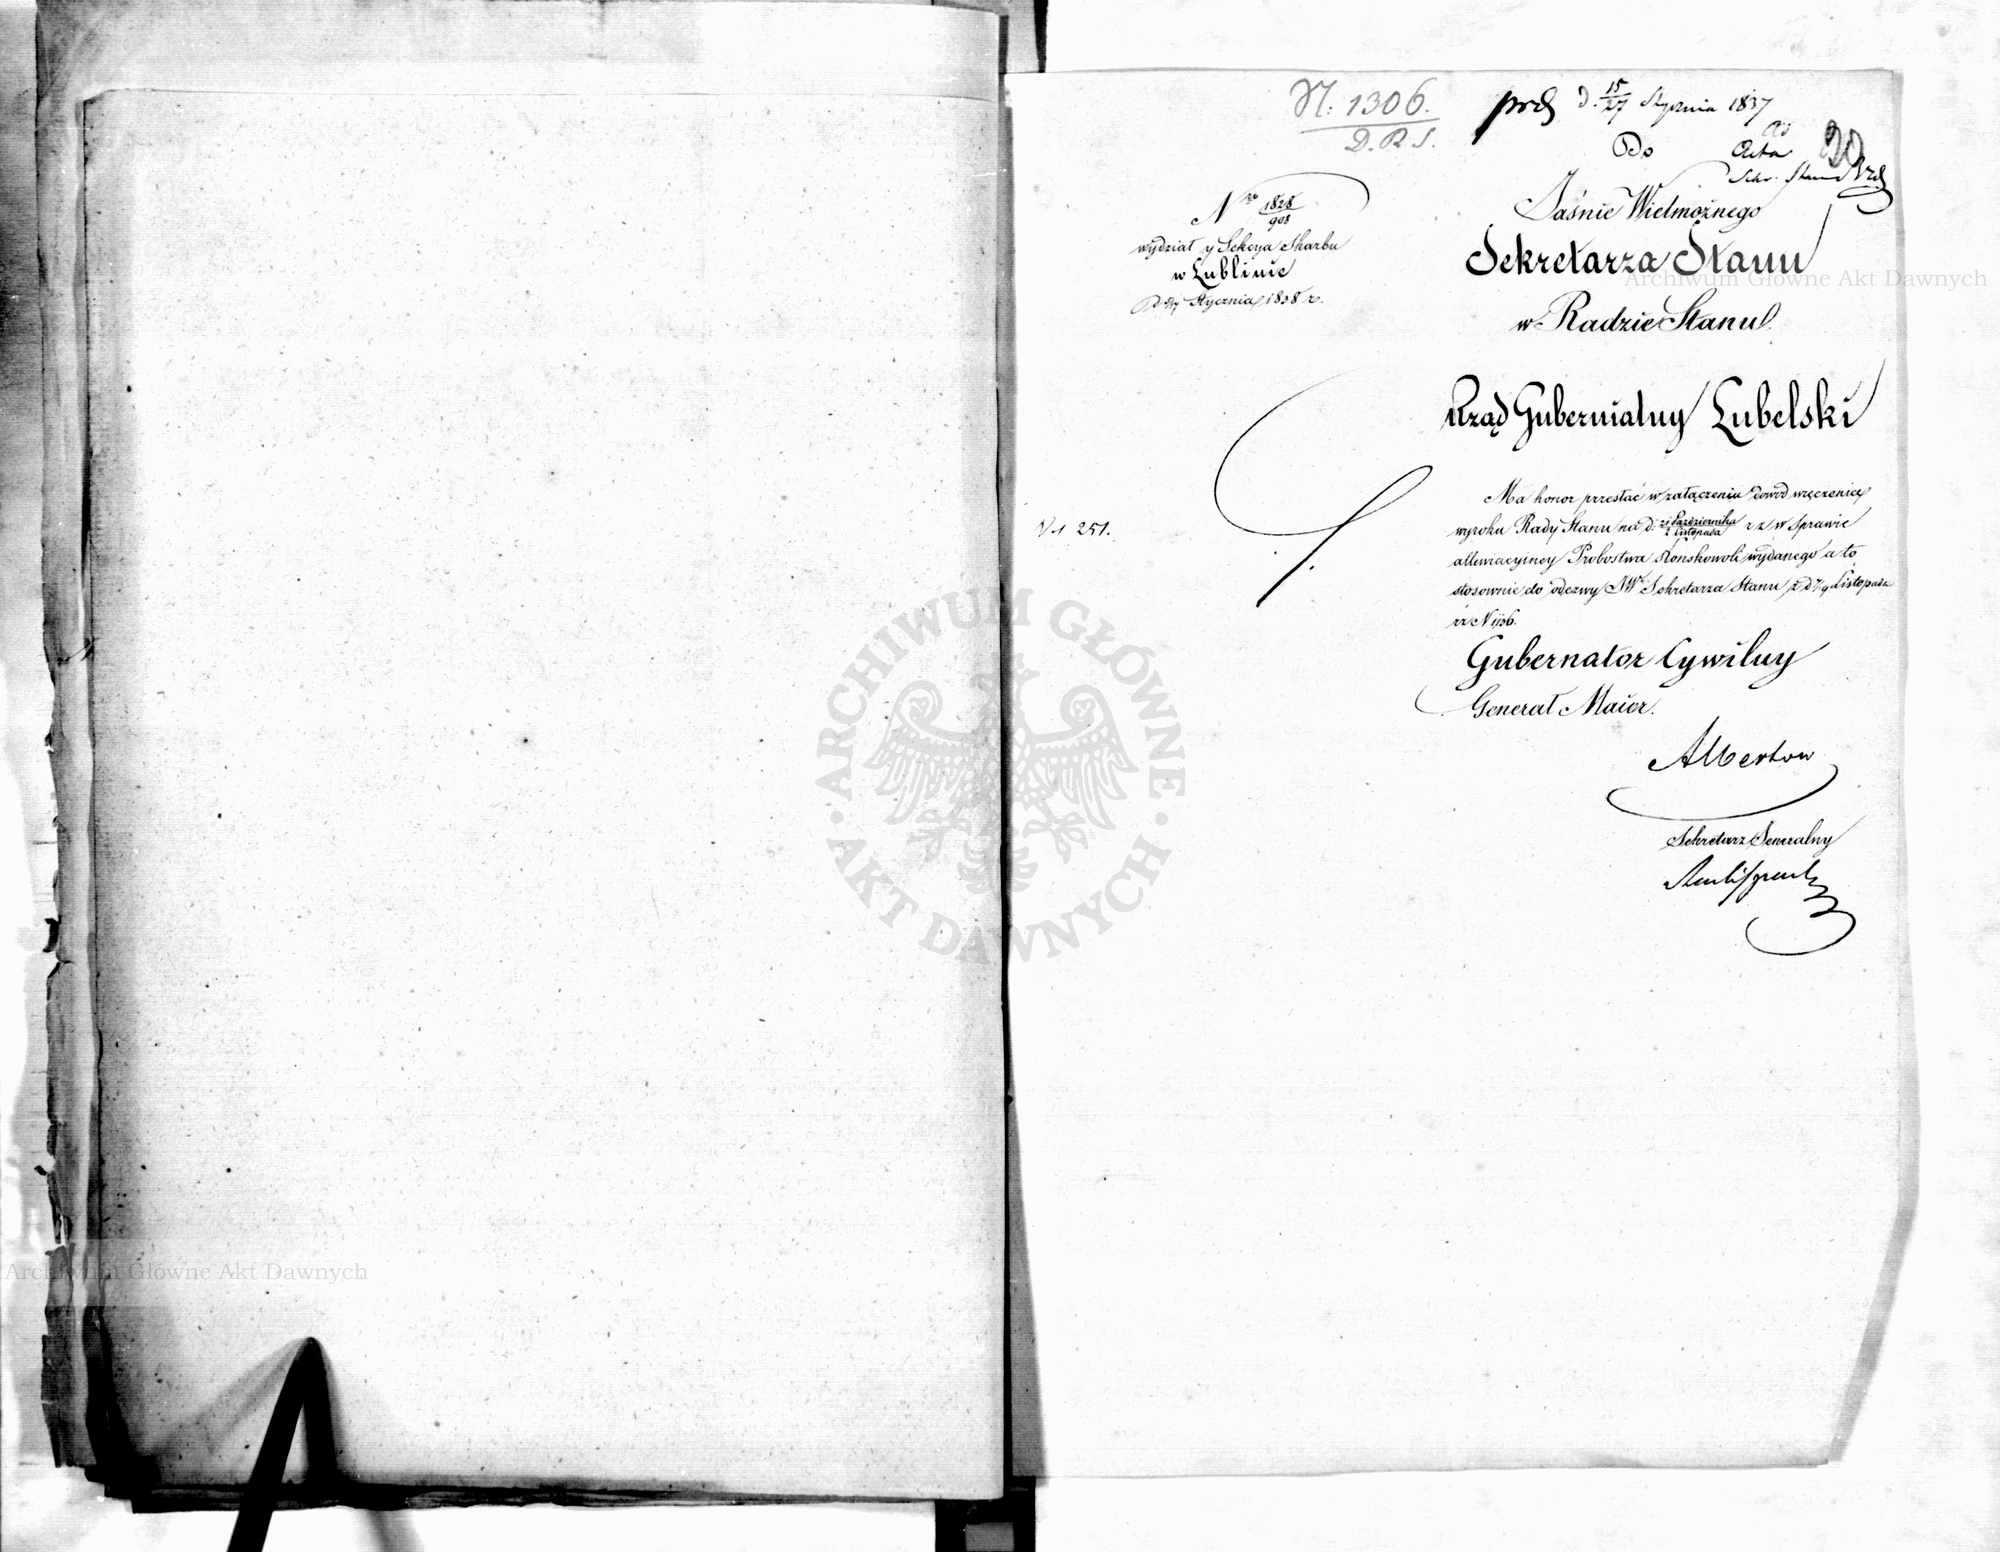 N. 1306.
D.R.S.
d. 15/27 Stycznia 1837
Do
ad
Acta
20
Nro 1828/908
wydział y Sekcya Skarbu
w Lublinie
Stycznia 1838 r.
Jaśnie Wielmożnego
Sekretarza Stanu
w Radzie Stanu
Rząd Gubernialny Lubelski
Ma honor przesłać w załączeniu dowód wręczenia
N 251.
wyroku Rady Stanu na d: 21 Października/2 Listopada r z w sprawie
allewiacyiney Probostwa Konskowoli wydanego a to
stosownie do odezwy JW Sekretarza Stanu z d 7/9 Listopada
rz N
Gubernator Cywilny
Generał Maior.
Albertow
Sekretarz Generalny
ARCHIWUM GŁÓWNE AKT DAWNYCH
Archiwum Główne Akt Dawnych
Archiwum Główne Akt Dawnych